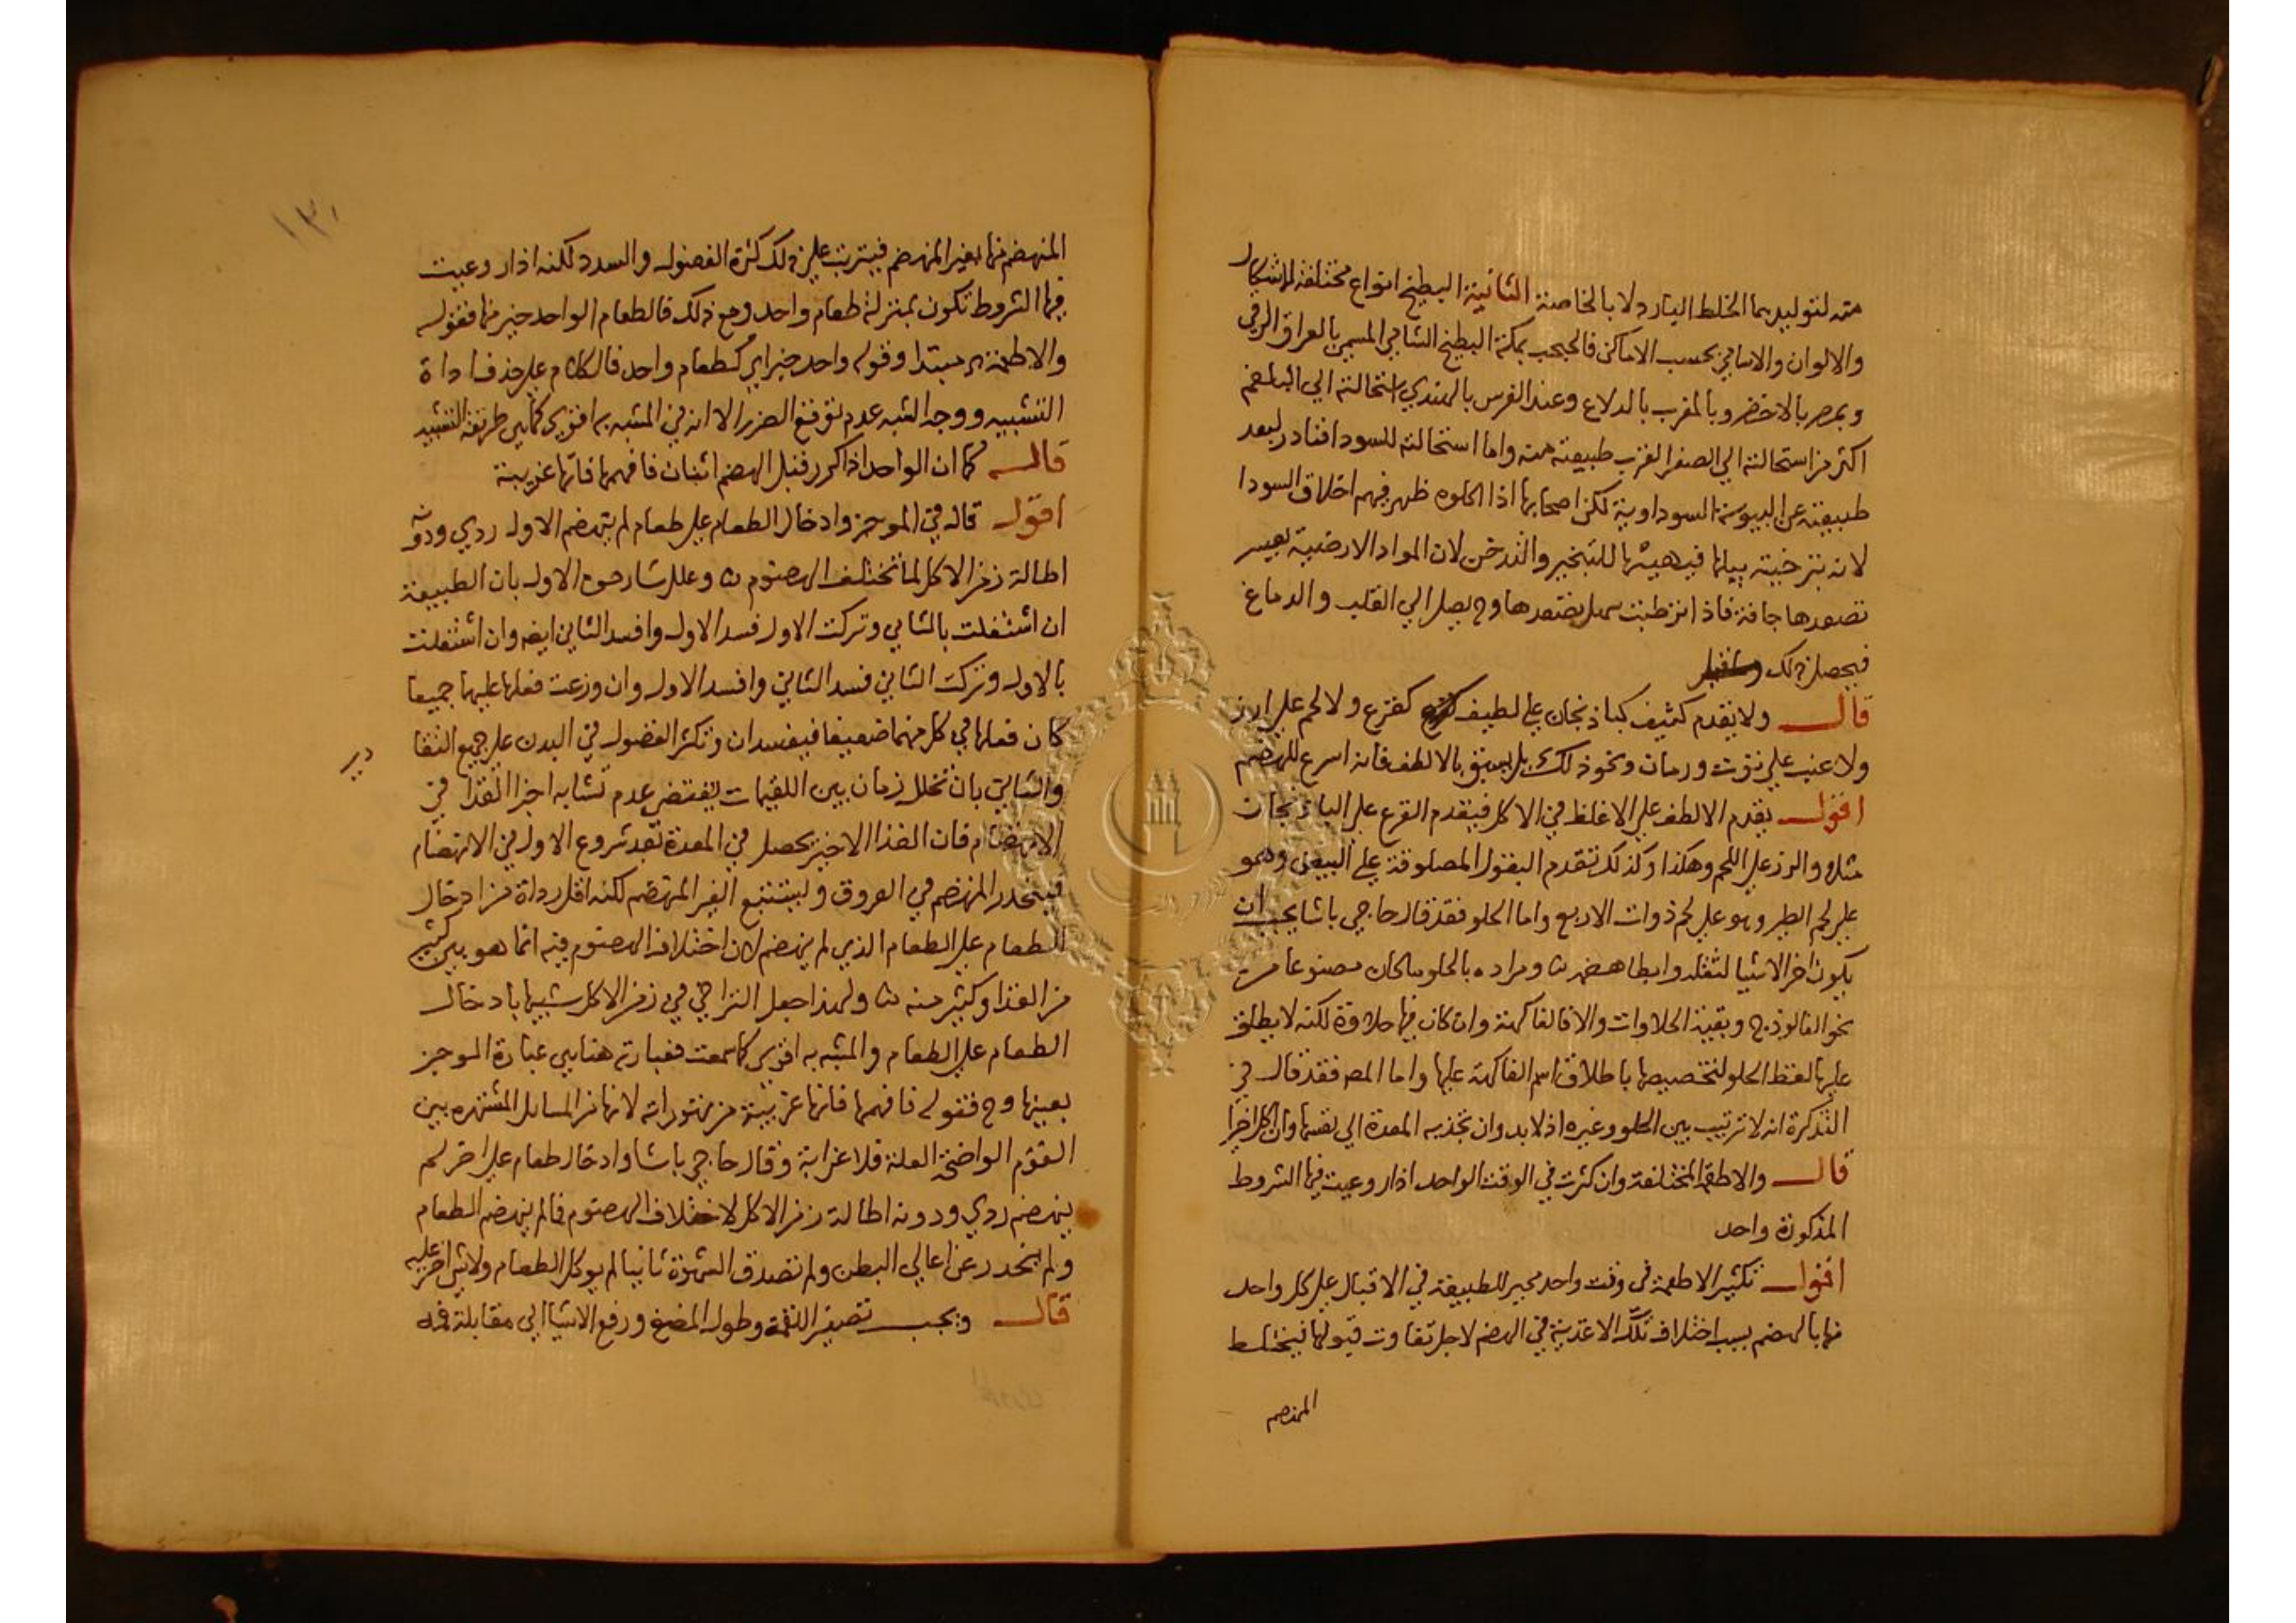 منه لتوليدهما الخلط البارد لا بالخاصة الثانية البطيخ انواع مختلفة الاشكال
والالوان والاسامي بحسب الاماكن فالحبحب بمكة البطيخ الشامي المسمى بالعراق الرقي
وبمصر بالاخضر وبالمغرب بالدلاع وعند الفرس بالهندي استحالته الى البلغم
اكثر من استحالته الى الصفرا لقرب طبيعته منه واما استحالته للسودا فنادر لبعد
طبيعته عن اليبوسة السوداوية لكن اصحابها اذا اكلوه ظهر فيهم اخلاق السودا
لانه يرخيه ببلها فيهيئها للتبخير والتدخن لان المواد الارضية يعسر
تصعدها جافة فاذا ترطبت سهل تصعدها وح يصل الى القلب والدماغ
فيحصل ذلك
قال ولا يقدم كثيف كباذنجان على لطيف كقرع ولا لحم على ارز
ولا عنب على توت ورمان ونحو ذلك بل يسبق بالالطف فانه اسرع للهضم
اقول يقدم الالطف على الاغلظ في الاكل فيقدم القرع على الباذنجان
مثلا والرز على اللحم وهكذا وكذلك تقدم البقول المصلوقة على البيض وهو
على لحم الطير وهو على لحم ذوات الاربع واما الحلو فقد قال حاجي باشا يجب ان
يكون اخر الاشيا لثقله وابطا هضمه ومراده بالحلو ما كان مصنوعا من
نحو الفالوذج وبقية الحلاوات والا فالفاكهة وان كان فيها حلاوة لكنه لا يطلق
عليها لفظ الحلو لتخصيصها باطلاق اسم الفاكهة عليها واما المص فقد قال في
التذكرة انه لا ترتيب بين الحلو وغيره اذ لا بد وان تجذبه المعدة الى نفسها وان اكل اخرا
قال والاطعمة المختلفة وان كثرت في الوقت الواحد اذا روعيت فيها الشروط
المذكورة واحد
اقول تكثير الاطعمة في وقت واحد محير للطبيعة في الاقبال على كل واحد
منها بالهضم بسبب اختلاف تلك الاغذية في الهضم لاجل تفاوت قبولها فيختلط
المنهضم
١٣٠
المنهضم منها بغير المنهضم فيترتب على ذلك كثرة الفضول والسدد لكنه اذا روعيت
فيها الشروط تكون بمنزلة طعام واحد ومع ذلك فالطعام الواحد خير منها فقوله
والاطعمة مبتدا وقوله واحد خبر اي كطعام واحد فالكلام على حذف اداة
التشبيه ووجه الشبه عدم توقع الضرر الا انه في المشبه به اقوى كما هي طريقة التشبيه
قال كما ان الواحد اذا كرر قبل الهضم اثنان فافهمها فانها غريبة
اقول قال في الموجز وادخال الطعام على طعام لم ينهضم الاول ردي ودونه
اطالة زمن الاكل لما تختلف الهضوم وعلل شارحوه الاول بان الطبيعة
ان اشتغلت بالثاني وتركت الاول فسد الاول وافسد الثاني ايضا وان اشتغلت
بالاول وتركت الثاني فسد الثاني وافسد الاول وان وزعت فعلها عليهما جميعا
كان فعلها في كل منهما ضعيفا فيفسدان وتكثر الفضول في البدن على جميع التقا
دير
والثاني بان تخلل زمان بين اللقيمات يقتضي عدم تشابه اجزا الغذا في
الانهضام فان الغذا الاخير يحصل في المعدة بعد شروع الاول في الانهضام
فينحدر المنهضم في العروق وليستتبع الغير المنهضم لكنه اقل رداة من ادخال
للطعام على الطعام الذي لم ينهضم لان اختلاف الهضوم فيه انما هو بين كثير
من الغذا وكثير منه ولهذا جعل التراخي في زمن الاكل شبيها بادخال
الطعام على الطعام والمشبه به اقوى كما سمعت فعبارته هنا هي عبارة الموجز
بعينها وح فقوله فافهمها فانها غريبة من مهتوراته لانها من المسايل المشتهره بين
القوم الواضحة العلة فلا غرابة وقال حاجي باشا وادخال طعام على اخر لم
ينهضم ردي ودونه اطالة زمن الاكل لاختلاف الهضوم فما لم ينهضم الطعام
ولم ينحدر عن اعالي البطن ولم تصدق الشهوة ثانيا لم يوكل الطعام ولا شي اخر عليه
قال ويجب تصغير اللقمة وطول المضغ ورفع الاشيا الى مقابلة فمه